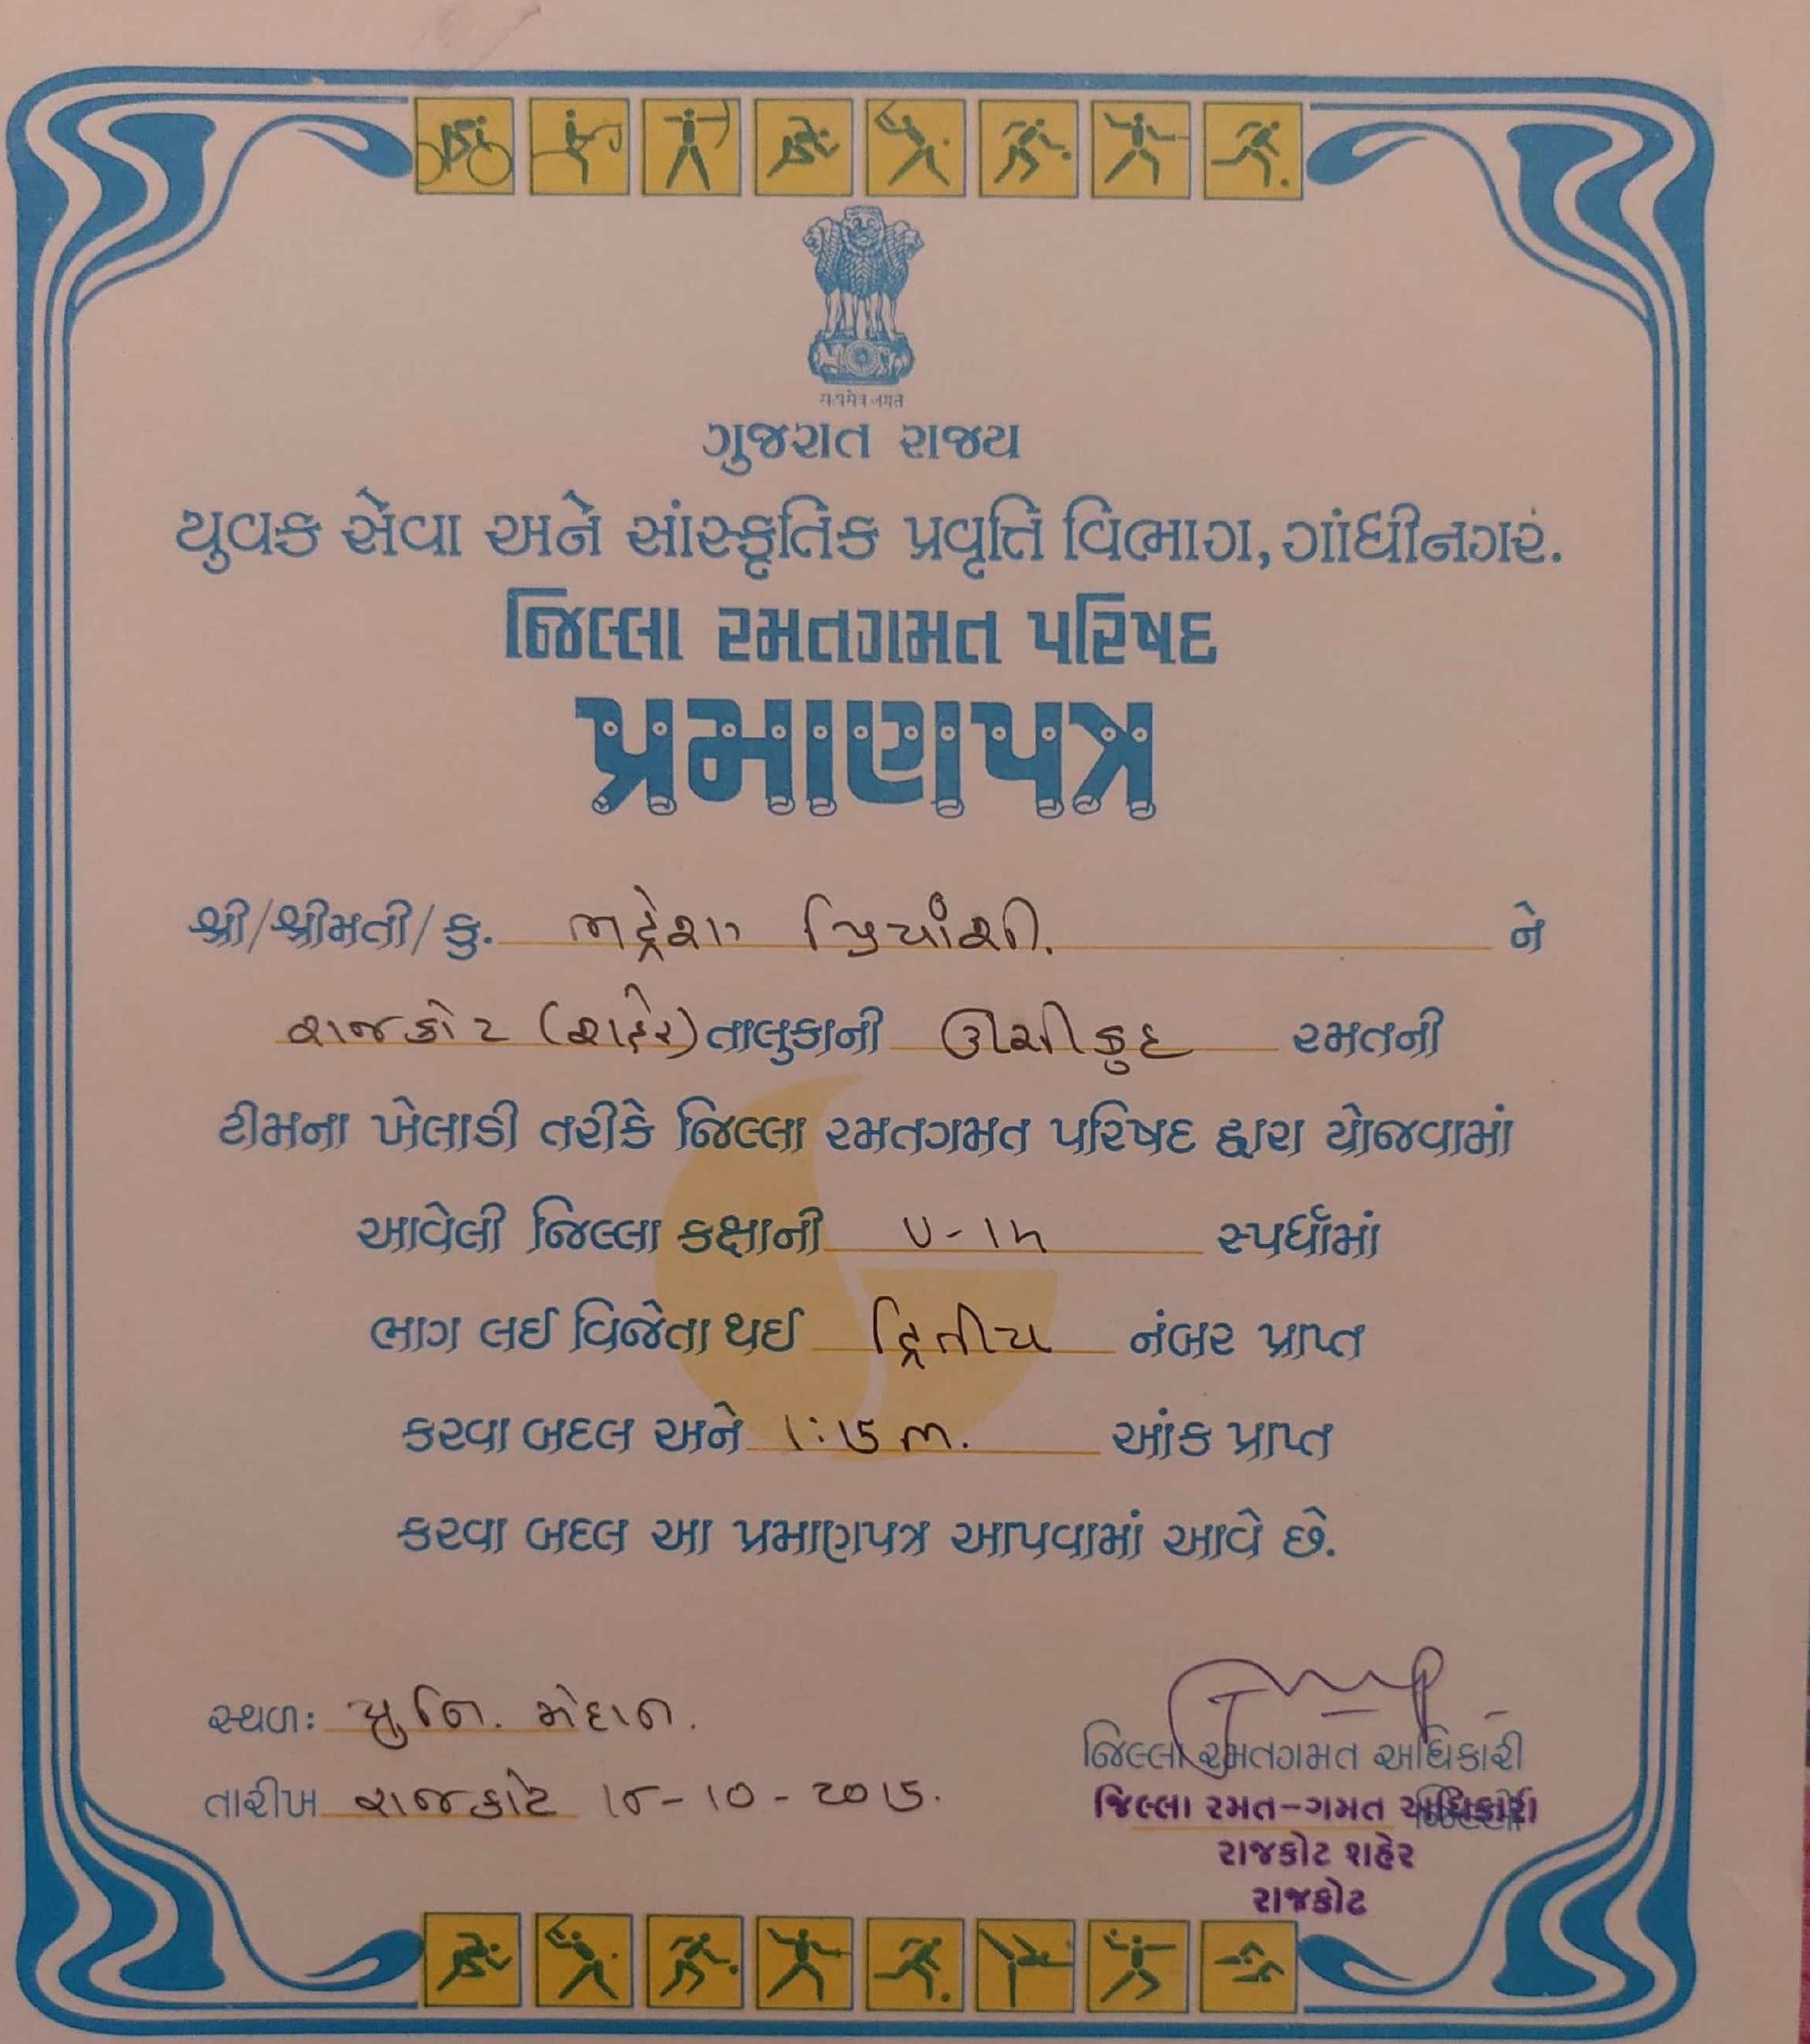 सत्यमेव जयते
ગુજરાત રાજ્ય
યુવક સેવા અને સાંસ્કૃતિક પ્રવૃત્તિ વિભાગ, ગાંધીનગર.
જિલ્લા રમતગમત પરિષદ
પ્રમાણપત્ર
શ્રી/શ્રીમતી/કુ. ભદ્રેશા પ્રિયાંશી. ને
રાજકોટ (શહેર) તાલુકાની ઊંચીકુદ રમતની
ટીમના ખેલાડી તરીકે જિલ્લા રમતગમત પરિષદ દ્વારા યોજવામાં
આવેલી જિલ્લા કક્ષાની U-14 સ્પર્ધામાં
ભાગ લઈ વિજેતા થઈ દ્વિતીય નંબર પ્રાપ્ત
કરવા બદલ અને 1:15 m. આંક પ્રાપ્ત
કરવા બદલ આ પ્રમાણપત્ર આપવામાં આવે છે.
સ્થળ: યુનિ. મેદાન.
તારીખ રાજકોટ -10-2015.
જિલ્લા રમતગમત અધિકારી
જિલ્લા રમત-ગમત અધિકારી
રાજકોટ શહેર
રાજકોટ